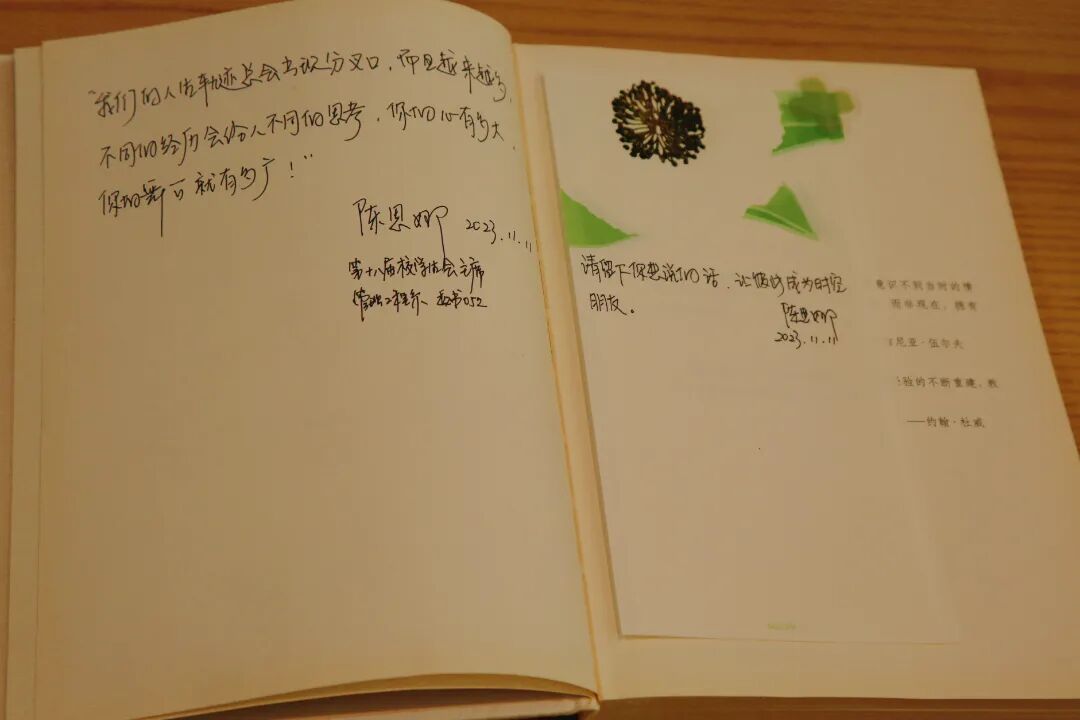 “我们的人生轨迹总会出现分叉口，而且越来越多，
不同的经历会给人不同的思考，你的心有多大，
你的舞台就有多广！”
陈恩娜 2023.11.11
第十八届校学生会主席
管科工程系、 052
请留下你想说的话，让彼此成为时空
朋友。
陈恩娜
2023.11.11
意识不到当时的情
而非现在，拥有
尼亚·伍尔夫
验的不断重建，教
——约翰·杜威